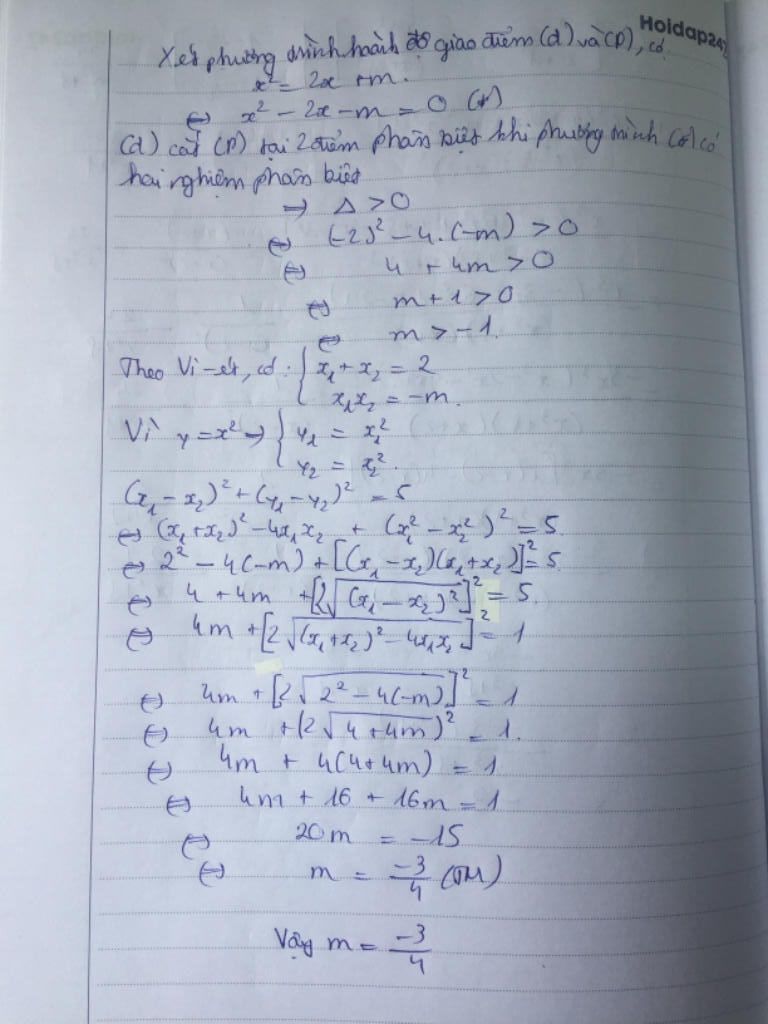 Hoidap247
Xét phương trình hoành độ giao điểm (d) và (P), có
x² = 2x + m.
⇔ x² - 2x - m = 0 (*)
(d) cắt (P) tại 2 điểm phân biệt khi phương trình (*) có
hai nghiệm phân biệt
→ Δ > 0
⇔ (-2)² - 4.(-m) > 0
⇔ 4 + 4m > 0
⇔ m + 1 > 0
⇔ m > -1.
Theo Vi-ét, có: { x₁ + x₂ = 2
x₁x₂ = -m.
Vì y = x² → { y₁ = x₁²
y₂ = x₂².
(x₁ - x₂)² + (y₁ - y₂)² = 5
⇔ (x₁ + x₂)² - 4x₁x₂ + (x₁² - x₂²)² = 5.
⇔ 2² - 4(-m) + [(x₁ - x₂)(x₁ + x₂)]² = 5.
⇔ 4 + 4m + [2√(x₁ - x₂)²]² = 5.
⇔ 4m + [2√(x₁ + x₂)² - 4x₁x₂]² = 1
⇔ 4m + [2√2² - 4(-m)]² = 1
⇔ 4m + (2√4 + 4m)² = 1.
⇔ 4m + 4(4 + 4m) = 1
⇔ 4m + 16 + 16m = 1
⇔ 20m = -15
⇔ m = -3/4 (TM)
Vậy m = -3/4